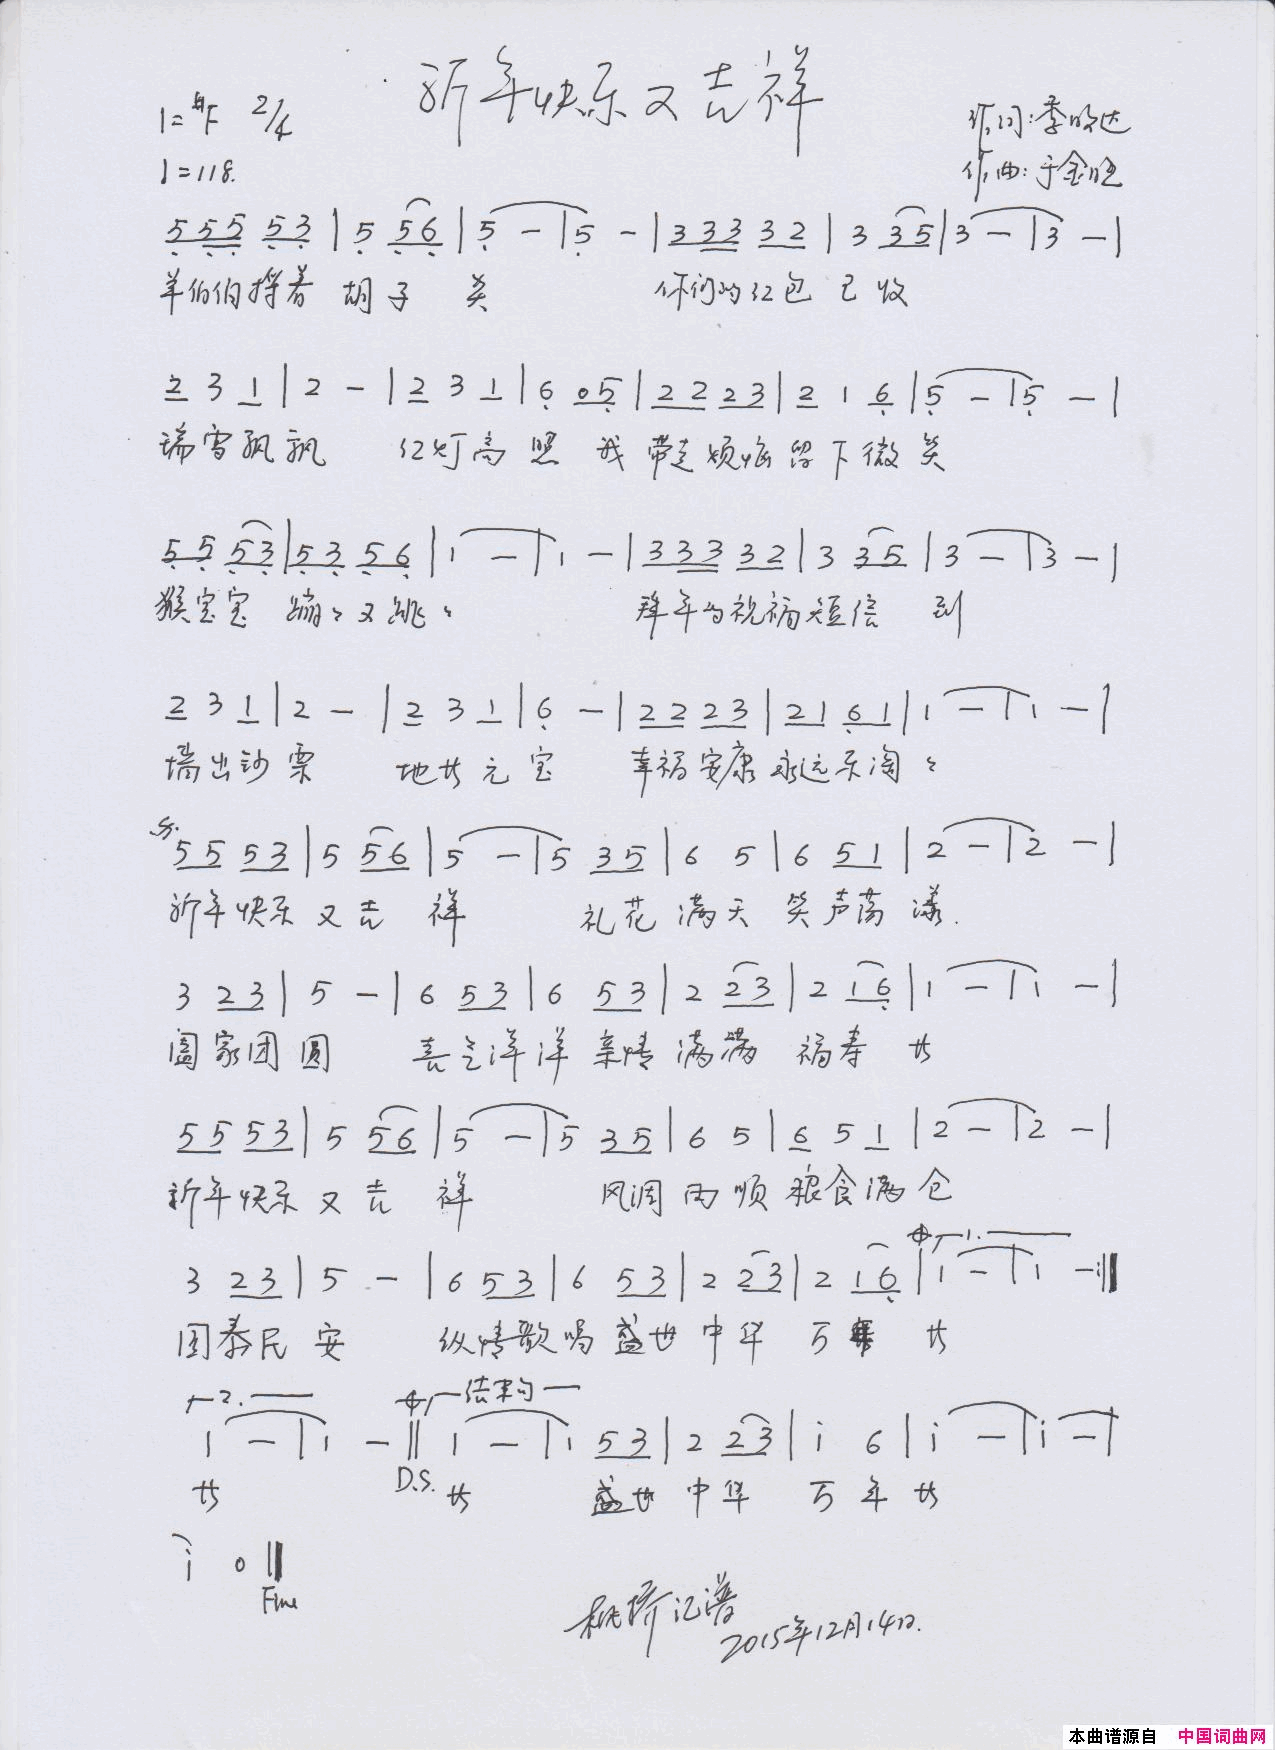 新年快乐又吉祥
1=#F 2/4
作词:李明达
1=118.
作曲:于金旺
5 5 5 5 3 | 5 5 6 | 5 — | 5 — | 3 3 3 3 2 | 3 3 5 | 3 — | 3 — |
羊伯伯捋着 胡子 笑 你们的红包已收
2 3 1 | 2 — | 2 3 1 | 6 0 5 | 2 2 2 3 | 2 1 6 | 5 — | 5 — |
瑞雪飘飘 红灯高照 我 带走烦恼留下微笑
5 5 5 3 | 5 3 5 6 | 1 — | 1 — | 3 3 3 3 2 | 3 3 5 | 3 — | 3 — |
猴宝宝 蹦々又跳々 拜年的祝福短信 到
2 3 1 | 2 — | 2 3 1 | 6 — | 2 2 2 3 | 2 1 6 1 | 1 — | 1 — |
墙出钞票 地长元宝 幸福安康永远乐淘々
5 5 5 3 | 5 5 6 | 5 — | 5 3 5 | 6 5 | 6 5 1 | 2 — | 2 — |
新年快乐又吉 祥 礼花满天 笑声荡漾.
3 2 3 | 5 — | 6 5 3 | 6 5 3 | 2 2 3 | 2 1 6 | 1 — | 1 — |
阖家团圆 喜气洋洋 亲情满满 福寿 长
5 5 5 3 | 5 5 6 | 5 — | 5 3 5 | 6 5 | 6 5 1 | 2 — | 2 — |
新年快乐又吉 祥 风调雨顺 粮食满仓
1.
3 2 3 | 5 — | 6 5 3 | 6 5 3 | 2 2 3 | 2 1 6 | 1 — | 1 — :||
国泰民安 纵情歌唱 盛世中华 万年 长
2. 结束句
1 — | 1 — || 1 — | 1 5 3 | 2 2 3 | i 6 | i — | i — |
长 D.S. 长 盛世 中华 万年长
i 0 ||
Fine
桃桥记谱
2015年12月14日.
本曲谱源自 中国词曲网